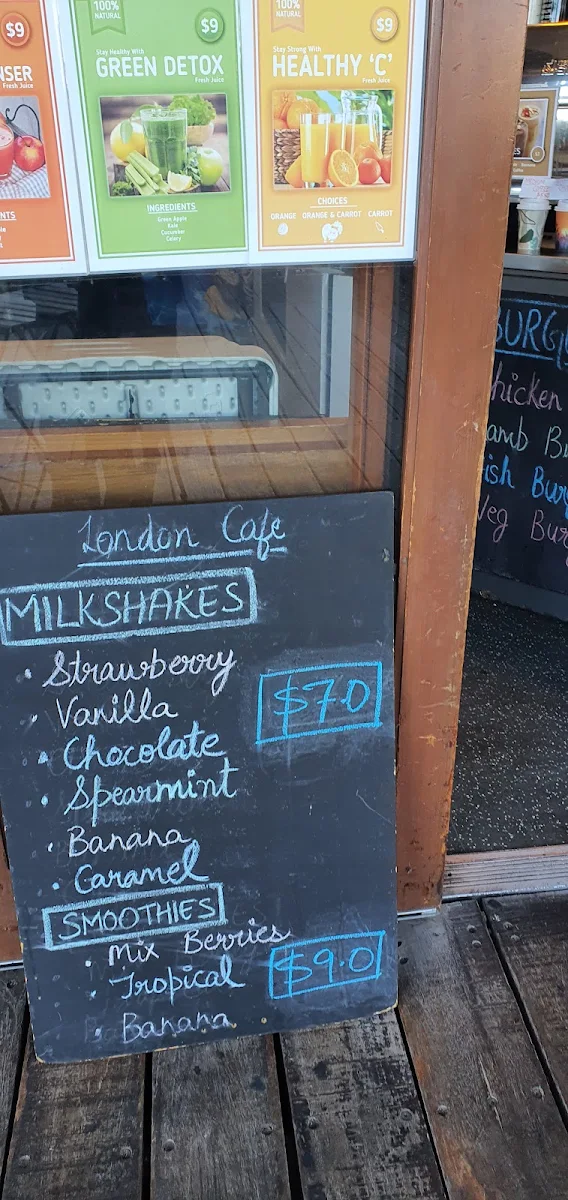 $9
NSER
Fresh Juice
100%
NATURAL
$9
Stay Healthy With
GREEN DETOX
Fresh Juice
INGREDIENTS
Green Apple
Kale
Cucumber
Celery
100%
NATURAL
$9
Stay Strong With
HEALTHY 'C'
Fresh Juice
CHOICES
ORANGE ORANGE & CARROT CARROT
London Cafe
MILKSHAKES
• Strawberry
• Vanilla
$7.0
• Chocolate
• Spearmint
• Banana
• Caramel
SMOOTHIES
• Mix Berries
• Tropical
$9.0
• Banana
BURG
hicken
amb Bu
ish Bur
Veg Bur